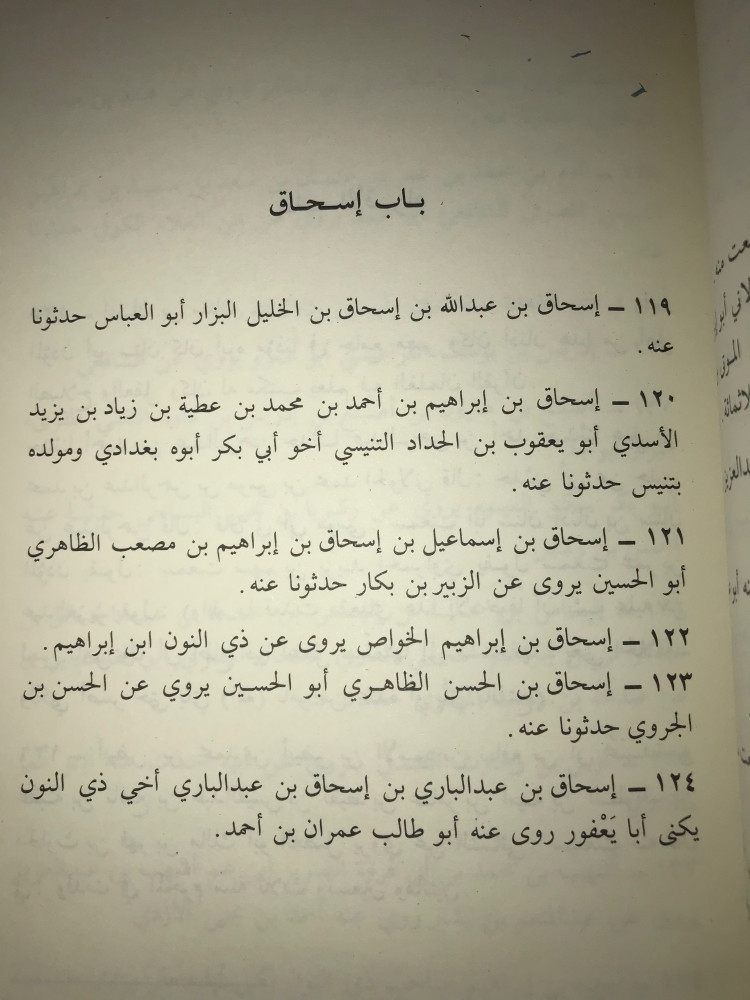 باب إسحاق
١١٩ ـ إسحاق بن عبدالله بن إسحاق بن الخليل البزار أبو العباس حدثونا
عنه.
١٢٠ ـ إسحاق بن إبراهيم بن أحمد بن محمد بن عطية بن زياد بن يزيد
الأسدي أبو يعقوب بن الحداد التنيسي أخو أبي بكر أبوه بغدادي ومولده
بتنيس حدثونا عنه.
١٢١ ـ إسحاق بن إسماعيل بن إسحاق بن إبراهيم بن مصعب الظاهري
أبو الحسين يروى عن الزبير بن بكار حدثونا عنه.
١٢٢ ـ إسحاق بن إبراهيم الخواص يروى عن ذي النون ابن إبراهيم.
١٢٣ ـ إسحاق بن الحسن الظاهري أبو الحسين يروي عن الحسن بن
الجروي حدثونا عنه.
١٢٤ ـ إسحاق بن عبدالباري بن إسحاق بن عبدالباري أخي ذي النون
يكنى أبا يَعْفور روى عنه أبو طالب عمران بن أحمد.